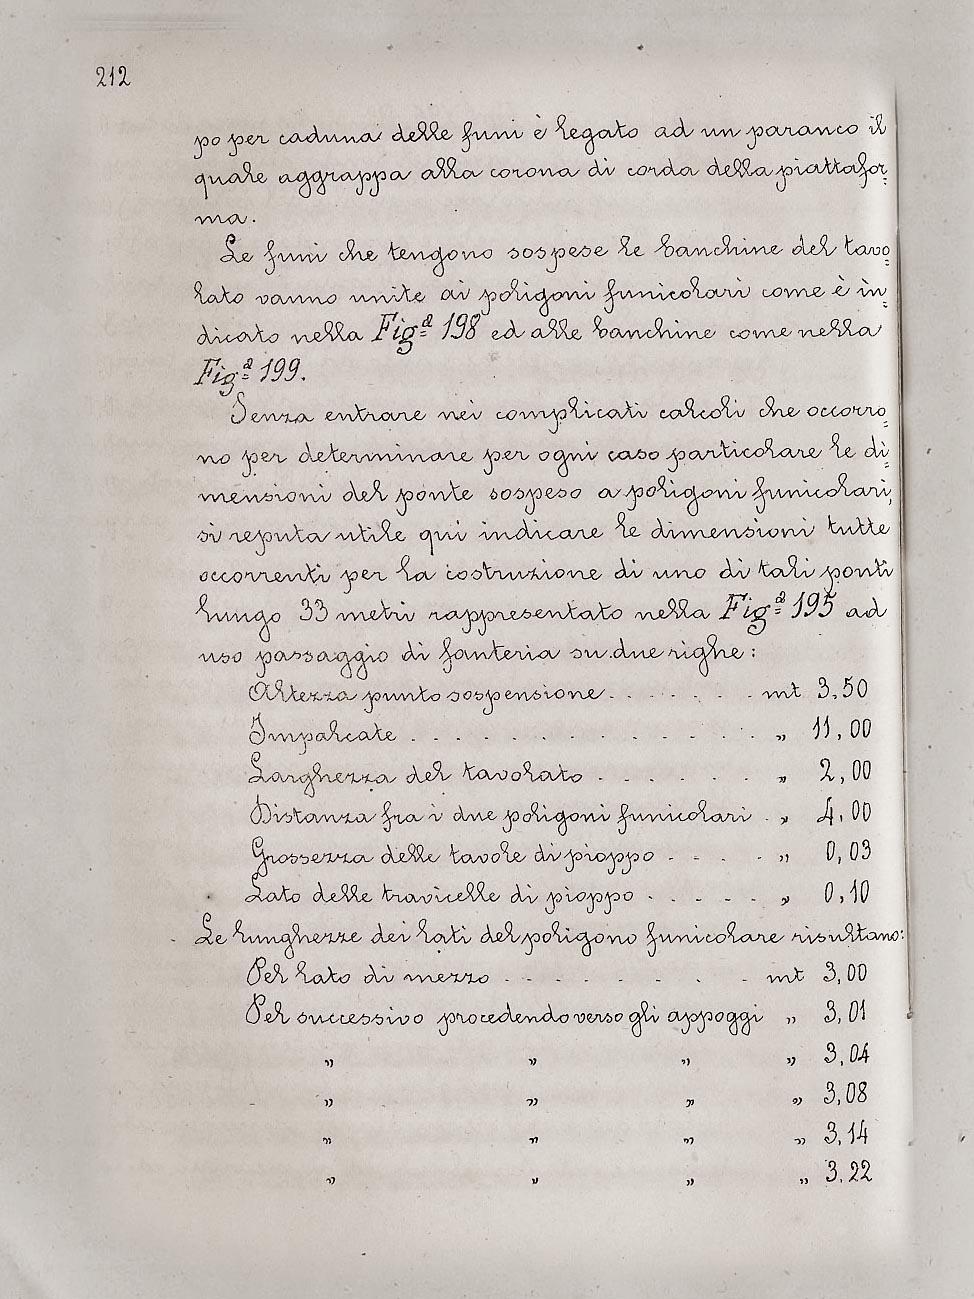 212
po per caduna delle funi è legato ad un paranco il
quale aggrappa alla corona di corda della piattafor=
ma.
Le funi che tengono sospese le banchine del tavo=
lato vanno unite ai poligoni funicolari come è in=
dicato nella Figª 198 ed alle banchine come nella
Figª 199.
Senza entrare nei complicati calcoli che occorro=
no per determinare per ogni caso particolare le di=
mensioni del ponte sospeso a poligoni funicolari,
si reputa utile qui indicare le dimensioni tutte
occorrenti per la costruzione di uno di tali ponti
lungo 33 metri rappresentato nella Figª 195 ad
uso passaggio di fanteria su due righe:
Altezza punto sospensione . . . . . . . mt 3,50
Impalcate . . . . . . . . . . . . . . „ 11,00
Larghezza del tavolato . . . . . . . „ 2,00
Distanza fra i due poligoni funicolari . „ 4,00
Grossezza delle tavole di pioppo . . . . „ 0,03
Lato delle travicelle di pioppo . . . . . „ 0,10
Le lunghezze dei lati del poligono funicolare risultano:
Pel lato di mezzo . . . . . . . . mt 3,00
Pel successivo procedendo verso gli appoggi „ 3,01
„ „ „ „ 3,04
„ „ „ „ 3,08
„ „ „ „ 3,14
„ „ „ „ 3.22